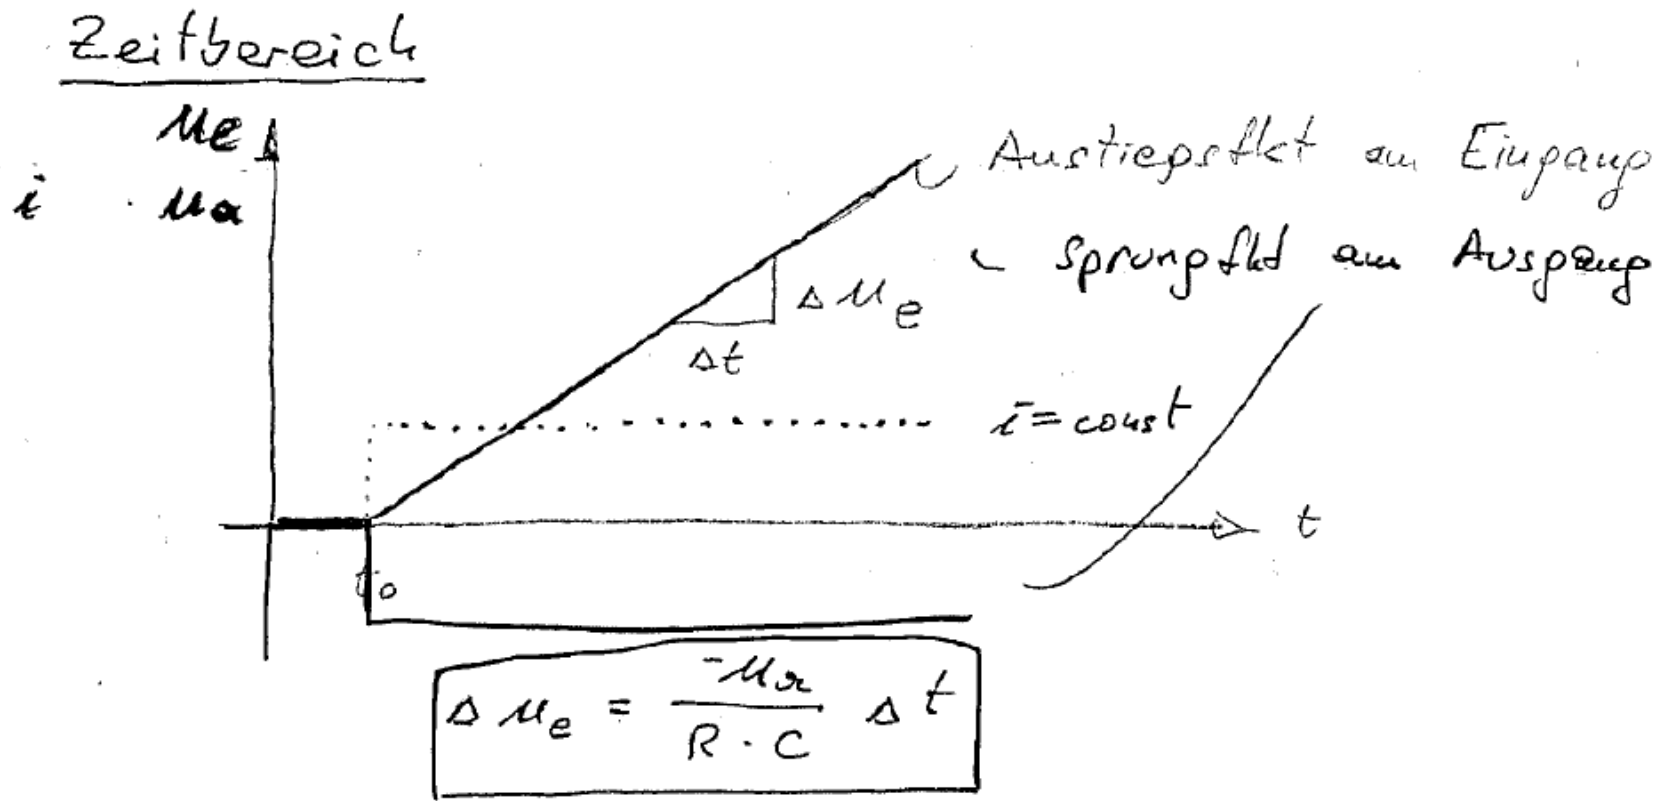 Zeitbereich
ue
i ua
Anstiegsfkt am Eingang
Sprungfkt am Ausgang
Δue
Δt
i = const
t
t0
Δue = -ua / R · C Δt